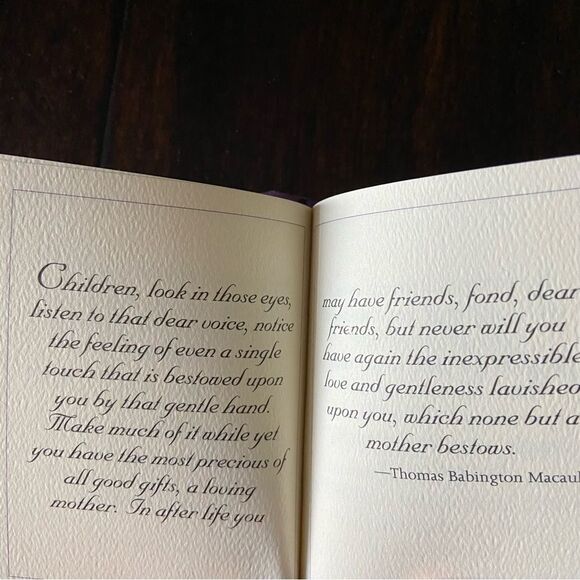 Children, look in those eyes,
listen to that dear voice, notice
the feeling of even a single
touch that is bestowed upon
you by that gentle hand.
Make much of it while yet
you have the most precious of
all good gifts, a loving
mother. In after life you
may have friends, fond, dear
friends, but never will you
have again the inexpressible
love and gentleness lavished
upon you, which none but a
mother bestows.
—Thomas Babington Macaul